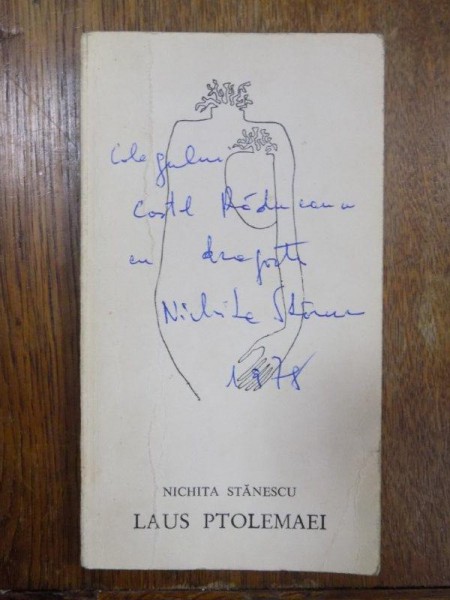 Colegului
Costel Răduceanu
cu dragoste
Nichita Stănescu
1978
NICHITA STĂNESCU
LAUS PTOLEMAEI